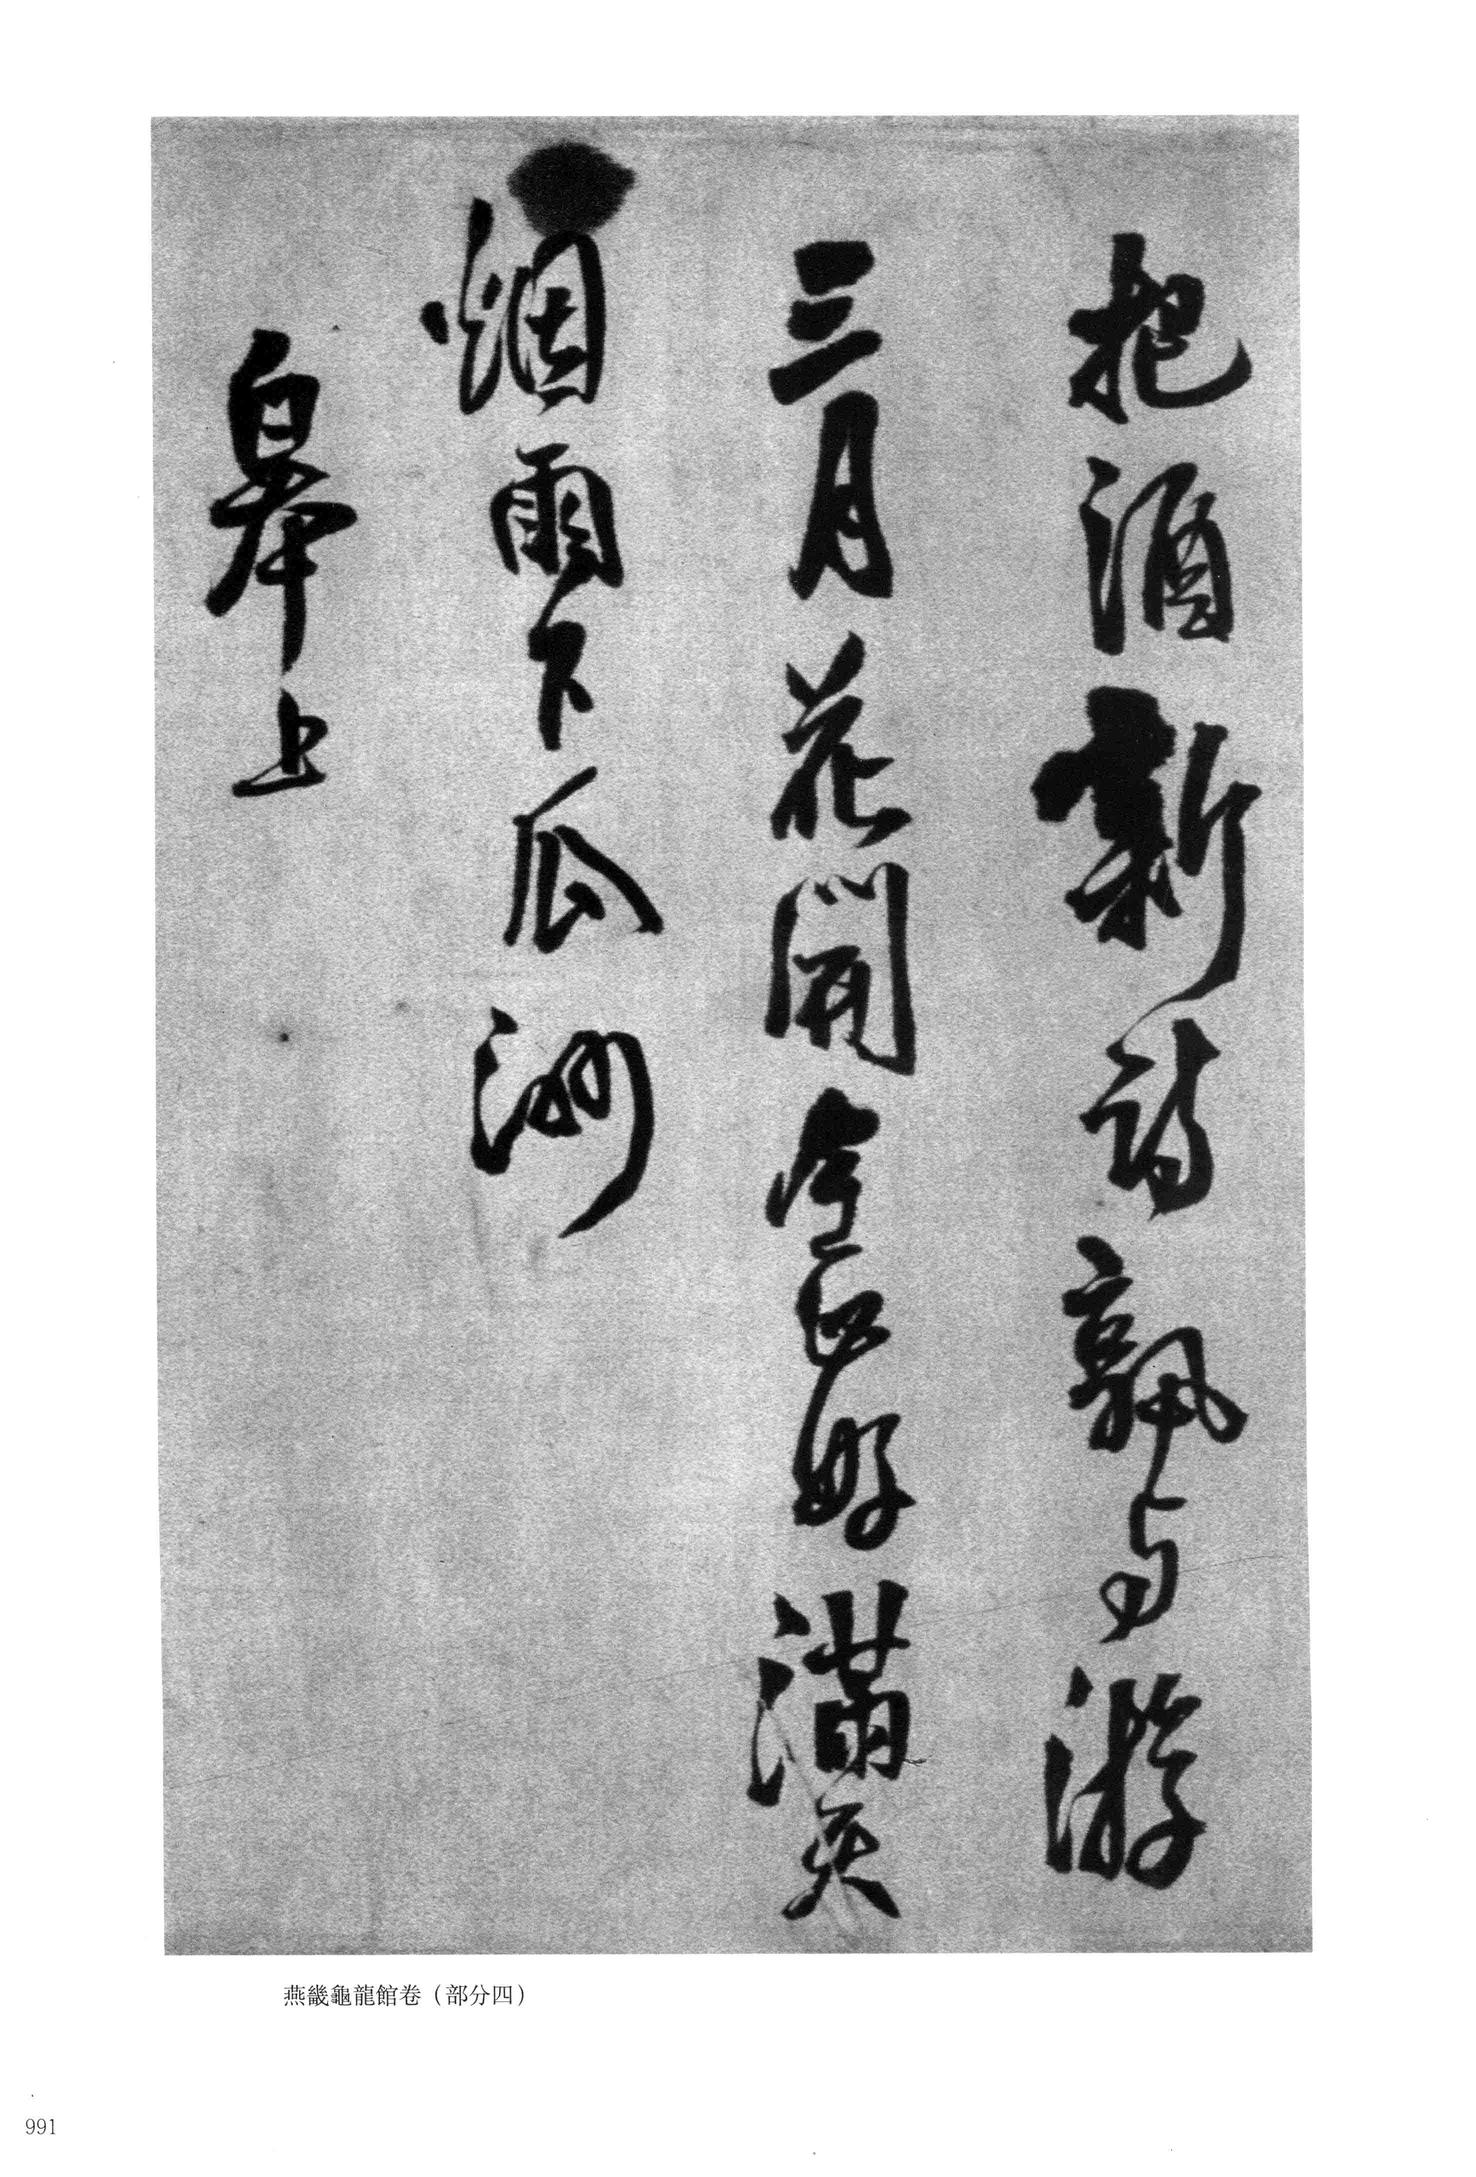 把酒新詩孰与游
三月花開好滿天
烟雨下瓜洲
皋上
燕畿龜龍館卷（部分四）
991